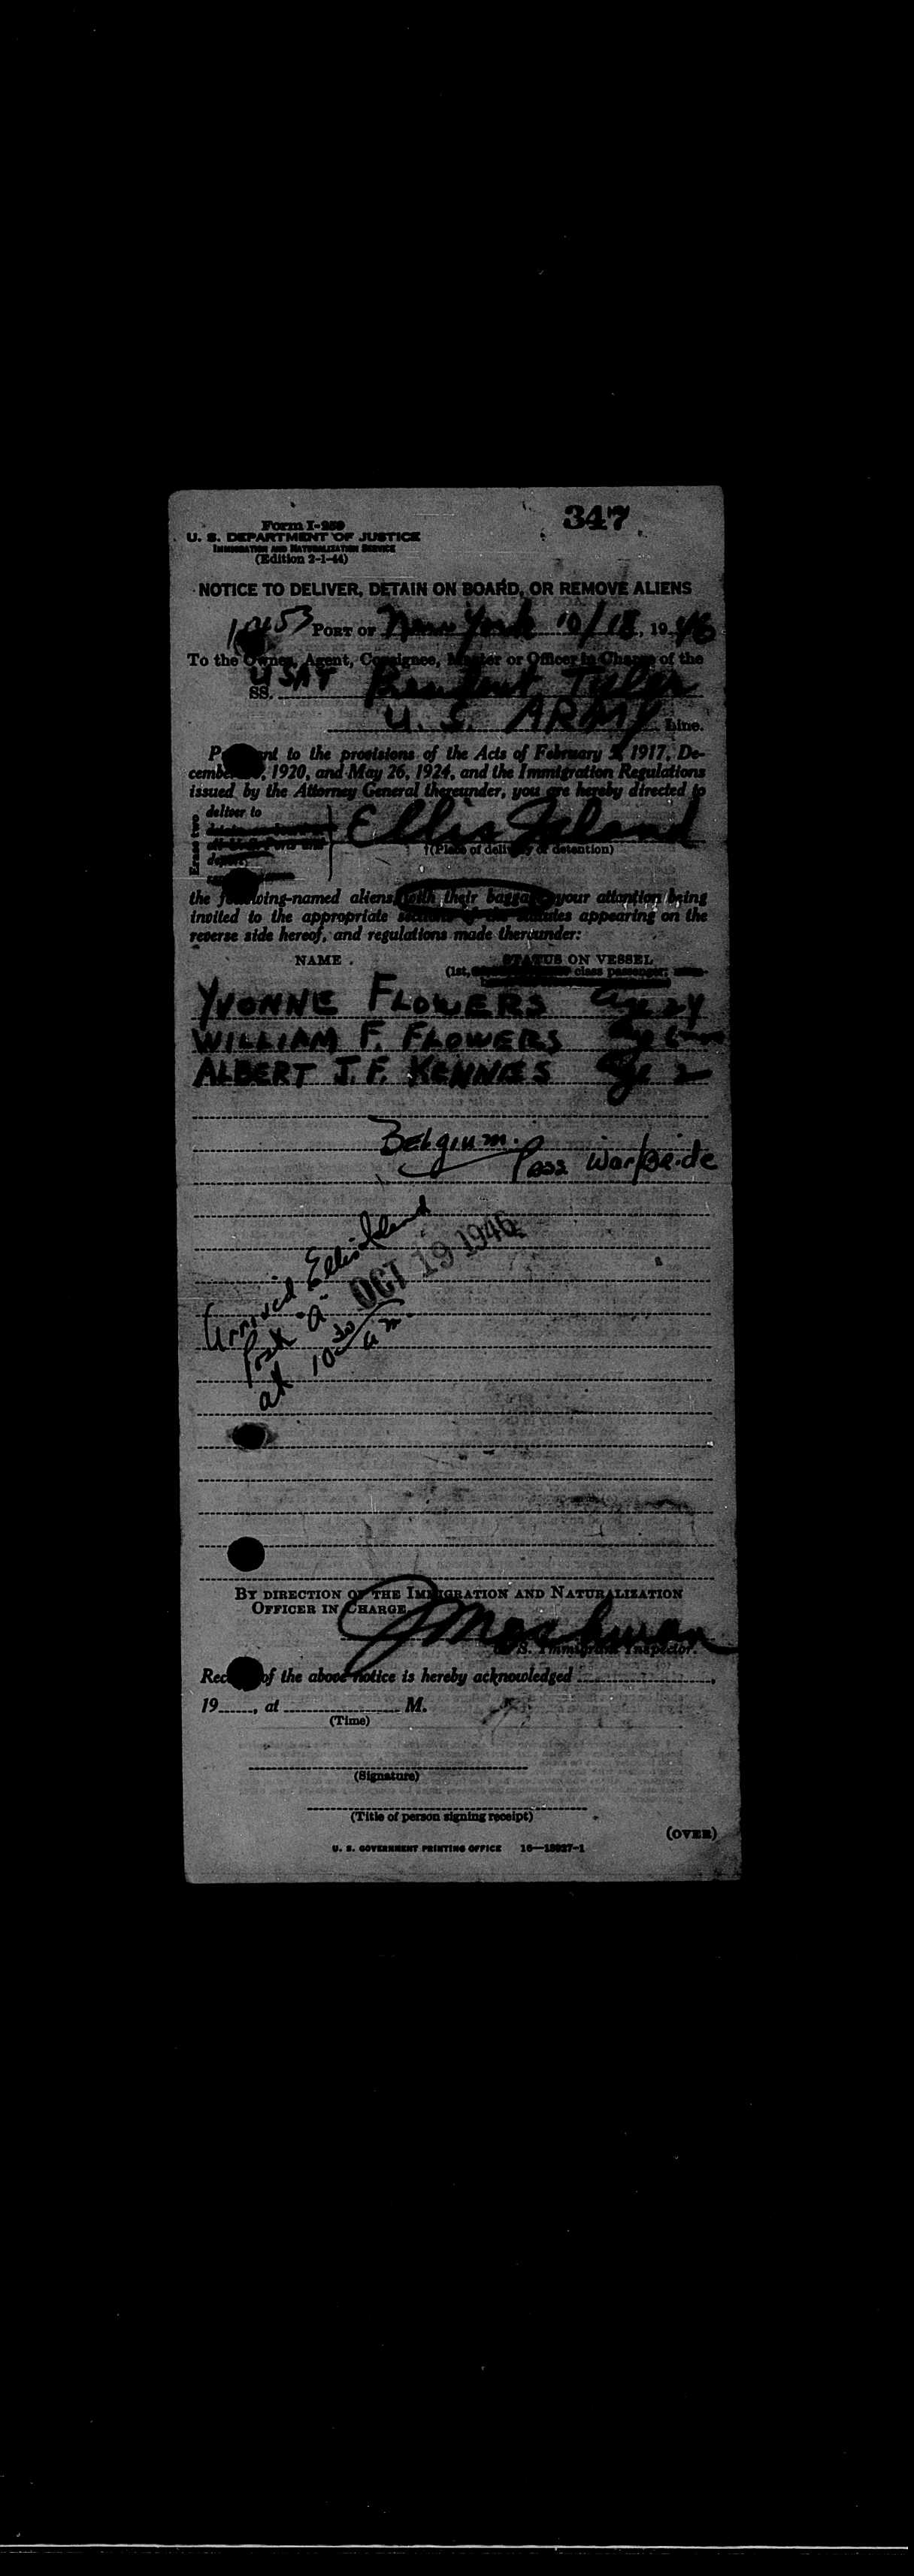 347
Form I-259
U. S. DEPARTMENT OF JUSTICE
IMMIGRATION AND NATURALIZATION SERVICE
(Edition 2-1-44)
NOTICE TO DELIVER, DETAIN ON BOARD, OR REMOVE ALIENS
PORT OF New York 10/18, 1946
To the Owner, Agent, Consignee, Master or Officer in Charge of the
USAT
SS. President Tyler
U. S. ARMY Line.
Pursuant to the provisions of the Acts of February 5, 1917, De-
cember 1920, and May 26, 1924, and the Immigration Regulations
issued by the Attorney General thereunder, you are hereby directed to
Erase two
deliver to
Ellis Island
†(Place of delivery or detention)
the following-named aliens, with their baggage, your attention being
invited to the appropriate sections of the statutes appearing on the
reverse side hereof, and regulations made thereunder:
NAME STATUS ON VESSEL
(1st, class passenger;
YVONNE FLOWERS Age 24
WILLIAM F. FLOWERS Age 6 mos
ALBERT J. F. Age 2
Belgium.
Pass War/Bride
Arrived Ellis Island
OCT 19 1946
"A"
at 10 30 am.
BY DIRECTION OF THE IMMIGRATION AND NATURALIZATION
OFFICER IN CHARGE
U. S. Immigrant Inspector.
Receipt of the above notice is hereby acknowledged,
19, at M.
(Time)
(Signature)
(Title of person signing receipt)
(OVER)
U. S. GOVERNMENT PRINTING OFFICE 16—18927-1